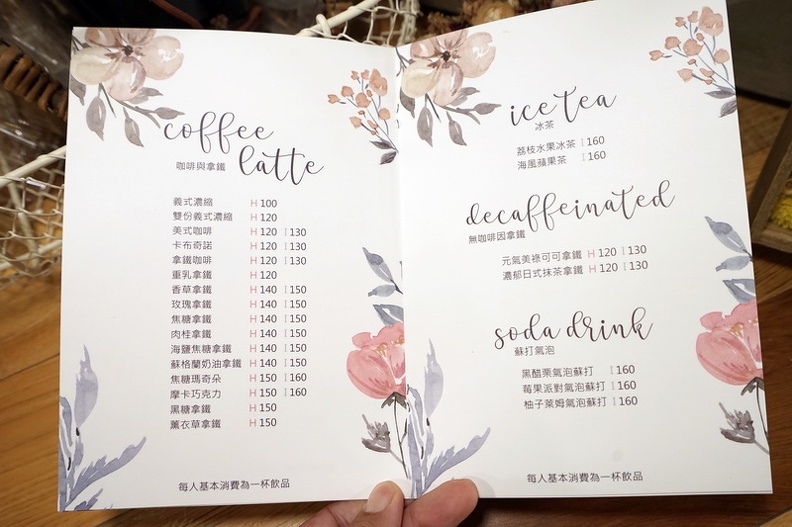 coffee
latte
咖啡與拿鐵
義式濃縮 H 100
雙份義式濃縮 H 120
美式咖啡 H 120 I 130
卡布奇諾 H 120 I 130
拿鐵咖啡 H 120 I 130
重乳拿鐵 H 120
香草拿鐵 H 140 I 150
玫瑰拿鐵 H 140 I 150
焦糖拿鐵 H 140 I 150
肉桂拿鐵 H 140 I 150
海鹽焦糖拿鐵 H 140 I 150
蘇格蘭奶油拿鐵 H 140 I 150
焦糖瑪奇朵 H 150 I 160
摩卡巧克力 H 150 I 160
黑糖拿鐵 H 150
薰衣草拿鐵 H 150
每人基本消費為一杯飲品
ice tea
冰茶
荔枝水果冰茶 I 160
海風蘋果茶 I 160
decaffeinated
無咖啡因拿鐵
元氣美祿可可拿鐵 H 120 I 130
濃郁日式抹茶拿鐵 H 120 I 130
soda drink
蘇打氣泡
黑醋栗氣泡蘇打 I 160
莓果派對氣泡蘇打 I 160
柚子萊姆氣泡蘇打 I 160
每人基本消費為一杯飲品